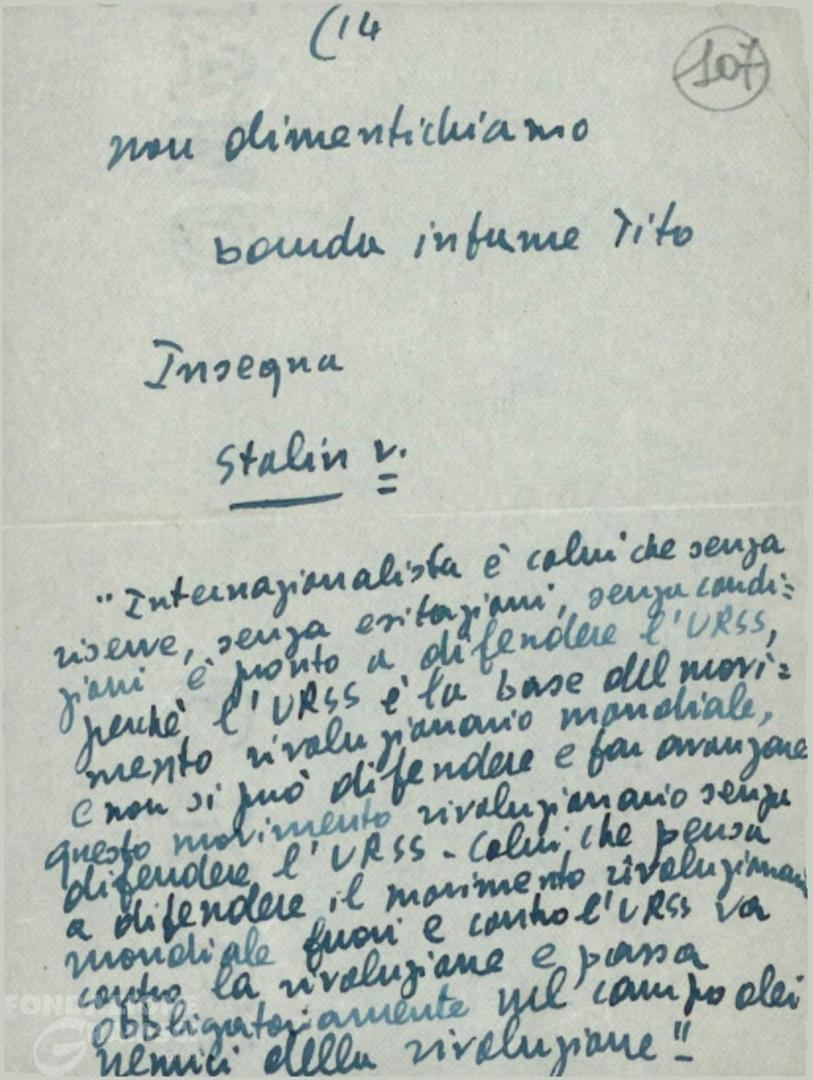 (14
107
non dimentichiamo
banda infame Tito
Insegna
Stalin v.
"Internazionalista è colui che senza
riserve, senza esitazioni, senza condi=
zioni è pronto a difendere l'URSS,
perchè l'URSS è la base del movi=
mento rivoluzionario mondiale,
e non si può difendere e far avanzare
questo movimento rivoluzionario senza
difendere l'URSS - Colui che pensa
a difendere il movimento rivoluzionario
mondiale fuori e contro l'URSS va
contro la rivoluzione e passa
obbligatoriamente nel campo dei
nemici della rivoluzione"
FONDAZIONE